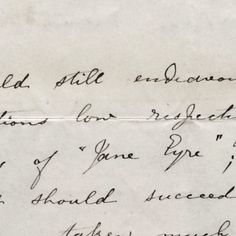 ld still endeavou
tions low respecti
of "Jane Eyre";
should succeed
taken much